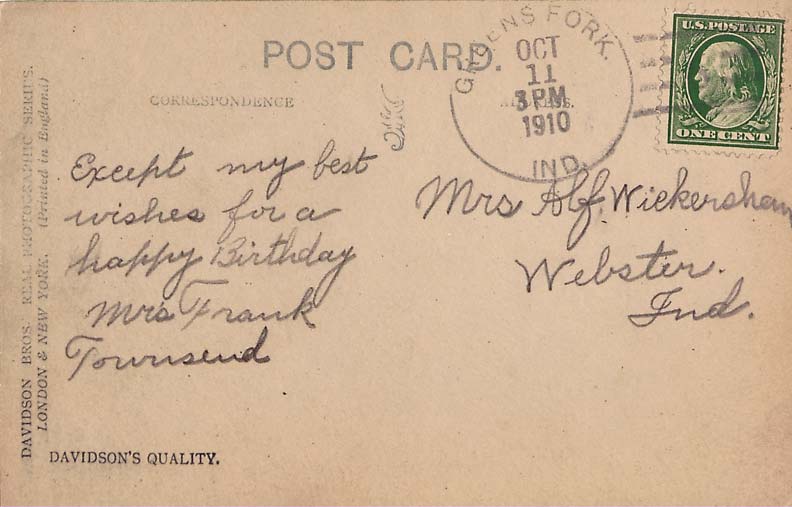 POST CARD.
CORRESPONDENCE
GREENS FORK.
OCT
11
3 PM
1910
IND.
U.S. POSTAGE
ONE CENT
Except my best
wishes for a
happy Birthday
Mrs Frank
Townsend
Mrs Alf. Wickersham
Webster.
Ind.
DAVIDSON BROS. REAL PHOTOGRAPHIC SERIES.
LONDON & NEW YORK. (Printed in England)
DAVIDSON'S QUALITY.